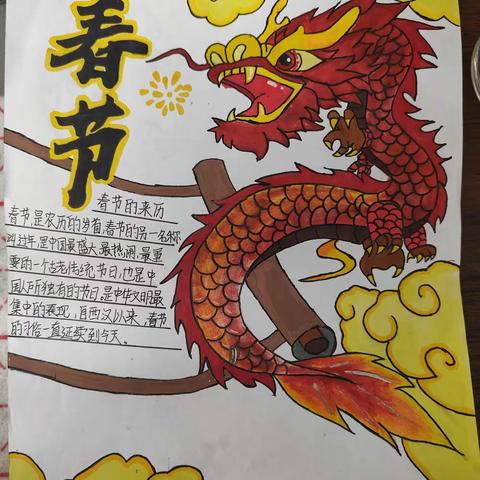 春节
春节的来历
春节,是农历的岁首,春节的另一名称
叫过年,是中国最盛大、最热闹、最重
要的一个古老传统节日,也是中
国人所独有的节日,是中华文明最
集中的表现,自西汉以来,春节
的习俗一直延续到今天。